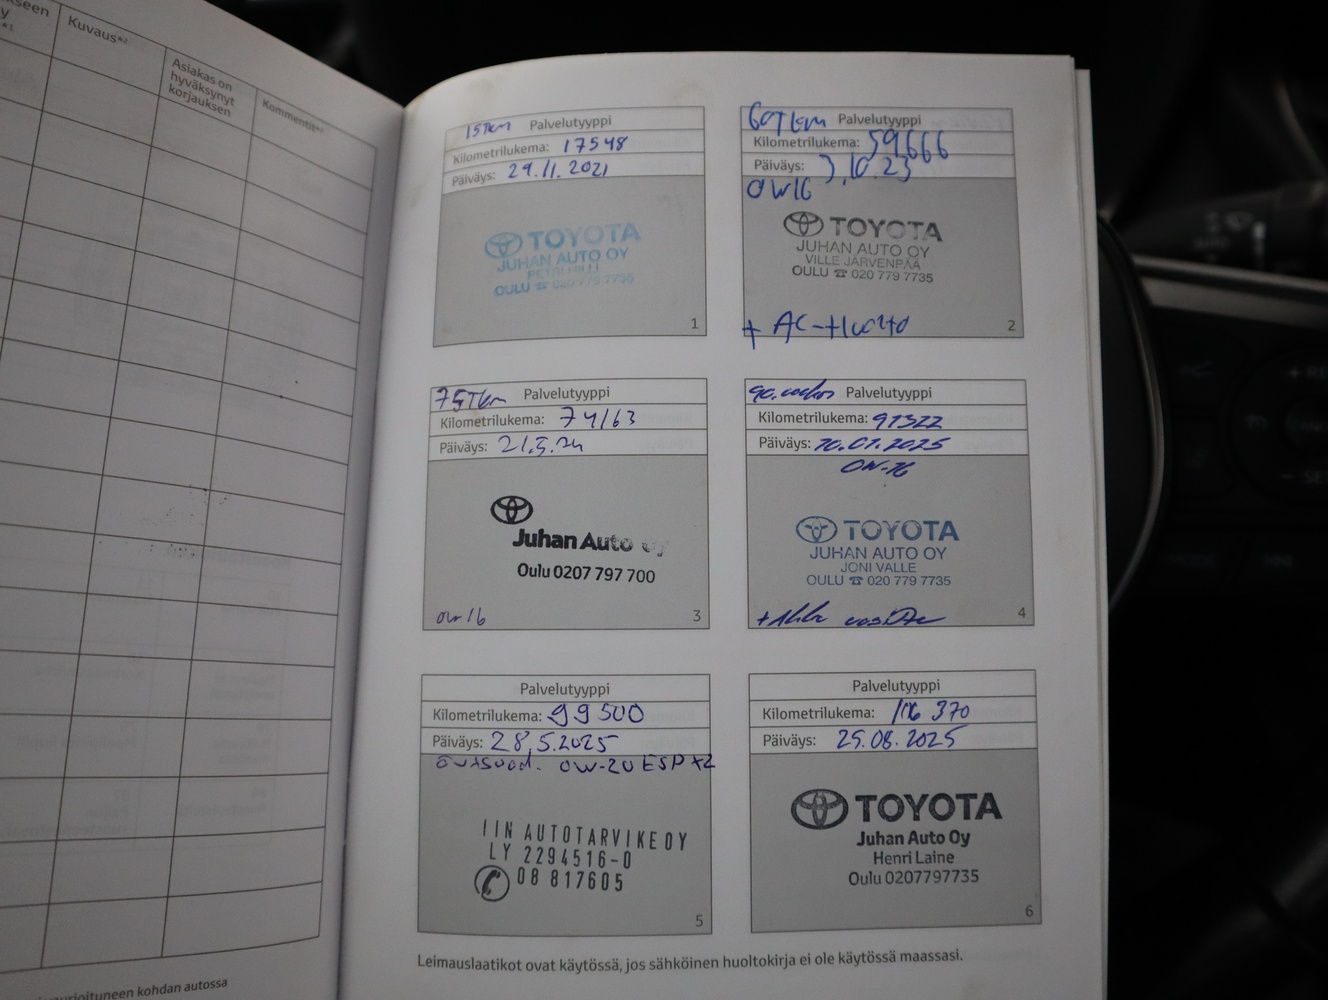 Kuvaus*²
Asiakas on
hyväksynyt
korjauksen
Kommentit*²
15Tkm Palvelutyyppi
Kilometrilukema: 17548
Päiväys: 29.11.2021
TOYOTA
JUHAN AUTO OY
OULU ☎ 020 779 7735
1
60Tkm Palvelutyyppi
Kilometrilukema: 59666
Päiväys: 3.10.23
0W16
TOYOTA
JUHAN AUTO OY
VILLE JÄRVENPÄÄ
OULU ☎ 020 779 7735
+ AC-Huolto
2
75Tkm Palvelutyyppi
Kilometrilukema: 74163
Päiväys: 21.5.24
Juhan Auto Oy
Oulu 0207 797 700
0W16
3
Palvelutyyppi
Kilometrilukema: 91322
Päiväys: 10.01.2025
0W-16
TOYOTA
JUHAN AUTO OY
JONI VALLE
OULU ☎ 020 779 7735
4
Palvelutyyppi
Kilometrilukema: 99500
Päiväys: 28.5.2025
0W-20 ESP X2
IIN AUTOTARVIKE OY
LY 2294516-0
08 817605
5
Palvelutyyppi
Kilometrilukema: 106 370
Päiväys: 25.08.2025
TOYOTA
Juhan Auto Oy
Henri Laine
Oulu 0207797735
6
Leimauslaatikot ovat käytössä, jos sähköinen huoltokirja ei ole käytössä maassasi.
kohdan autossa